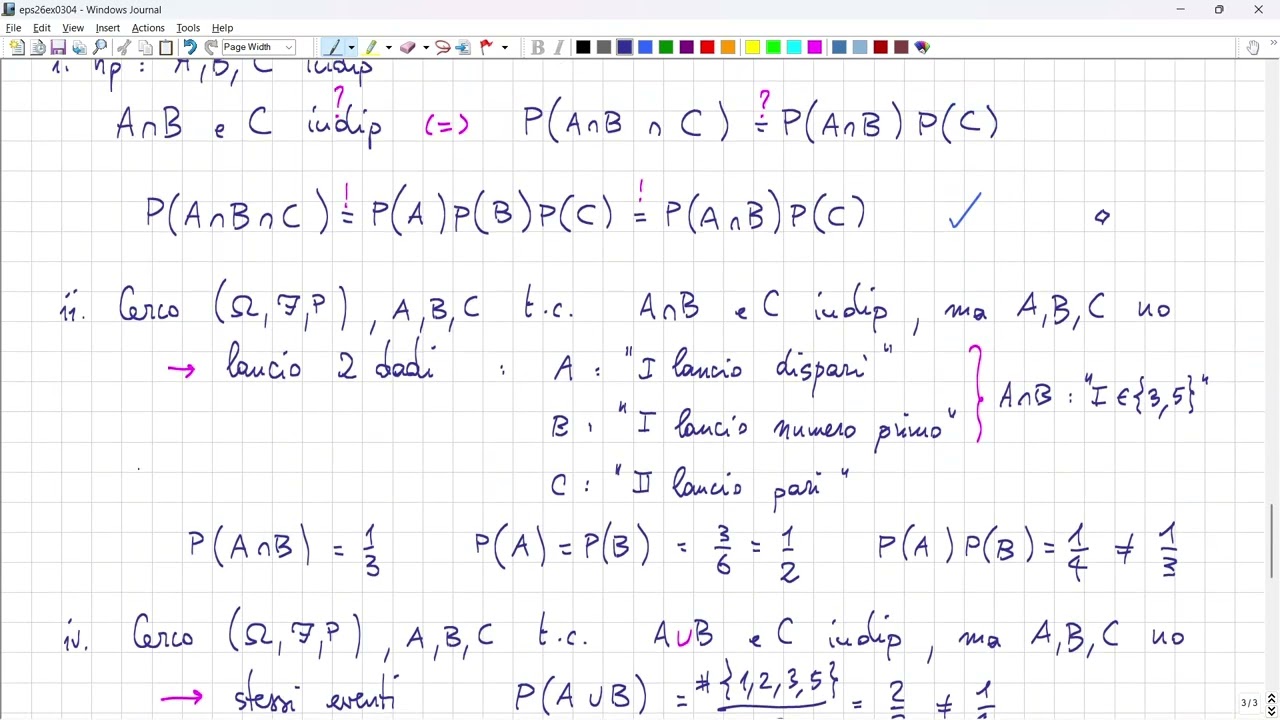 eps26ex0304 - Windows Journal
File Edit View Insert Actions Tools Help
Page Width
i. hp : A, B, C indip
A∩B e C indip ? (=) P(A∩B ∩ C) ?= P(A∩B) P(C)
P(A∩B∩C) != P(A) P(B) P(C) != P(A∩B) P(C) ✓ ⋄
ii. Cerco (Ω, F, P), A, B, C t.c. A∩B e C indip, ma A, B, C no
→ lancio 2 dadi : A : "I lancio dispari"
B : "I lancio numero primo"
} A∩B : "I ∈ {3,5}"
C : "II lancio pari"
P(A∩B) = 1/3 P(A) = P(B) = 3/6 = 1/2 P(A) P(B) = 1/4 ≠ 1/3
iv. Cerco (Ω, F, P), A, B, C t.c. A∪B e C indip, ma A, B, C no
→ stessi eventi P(A∪B) = #{1,2,3,5} = 2 ≠ 1
3/3